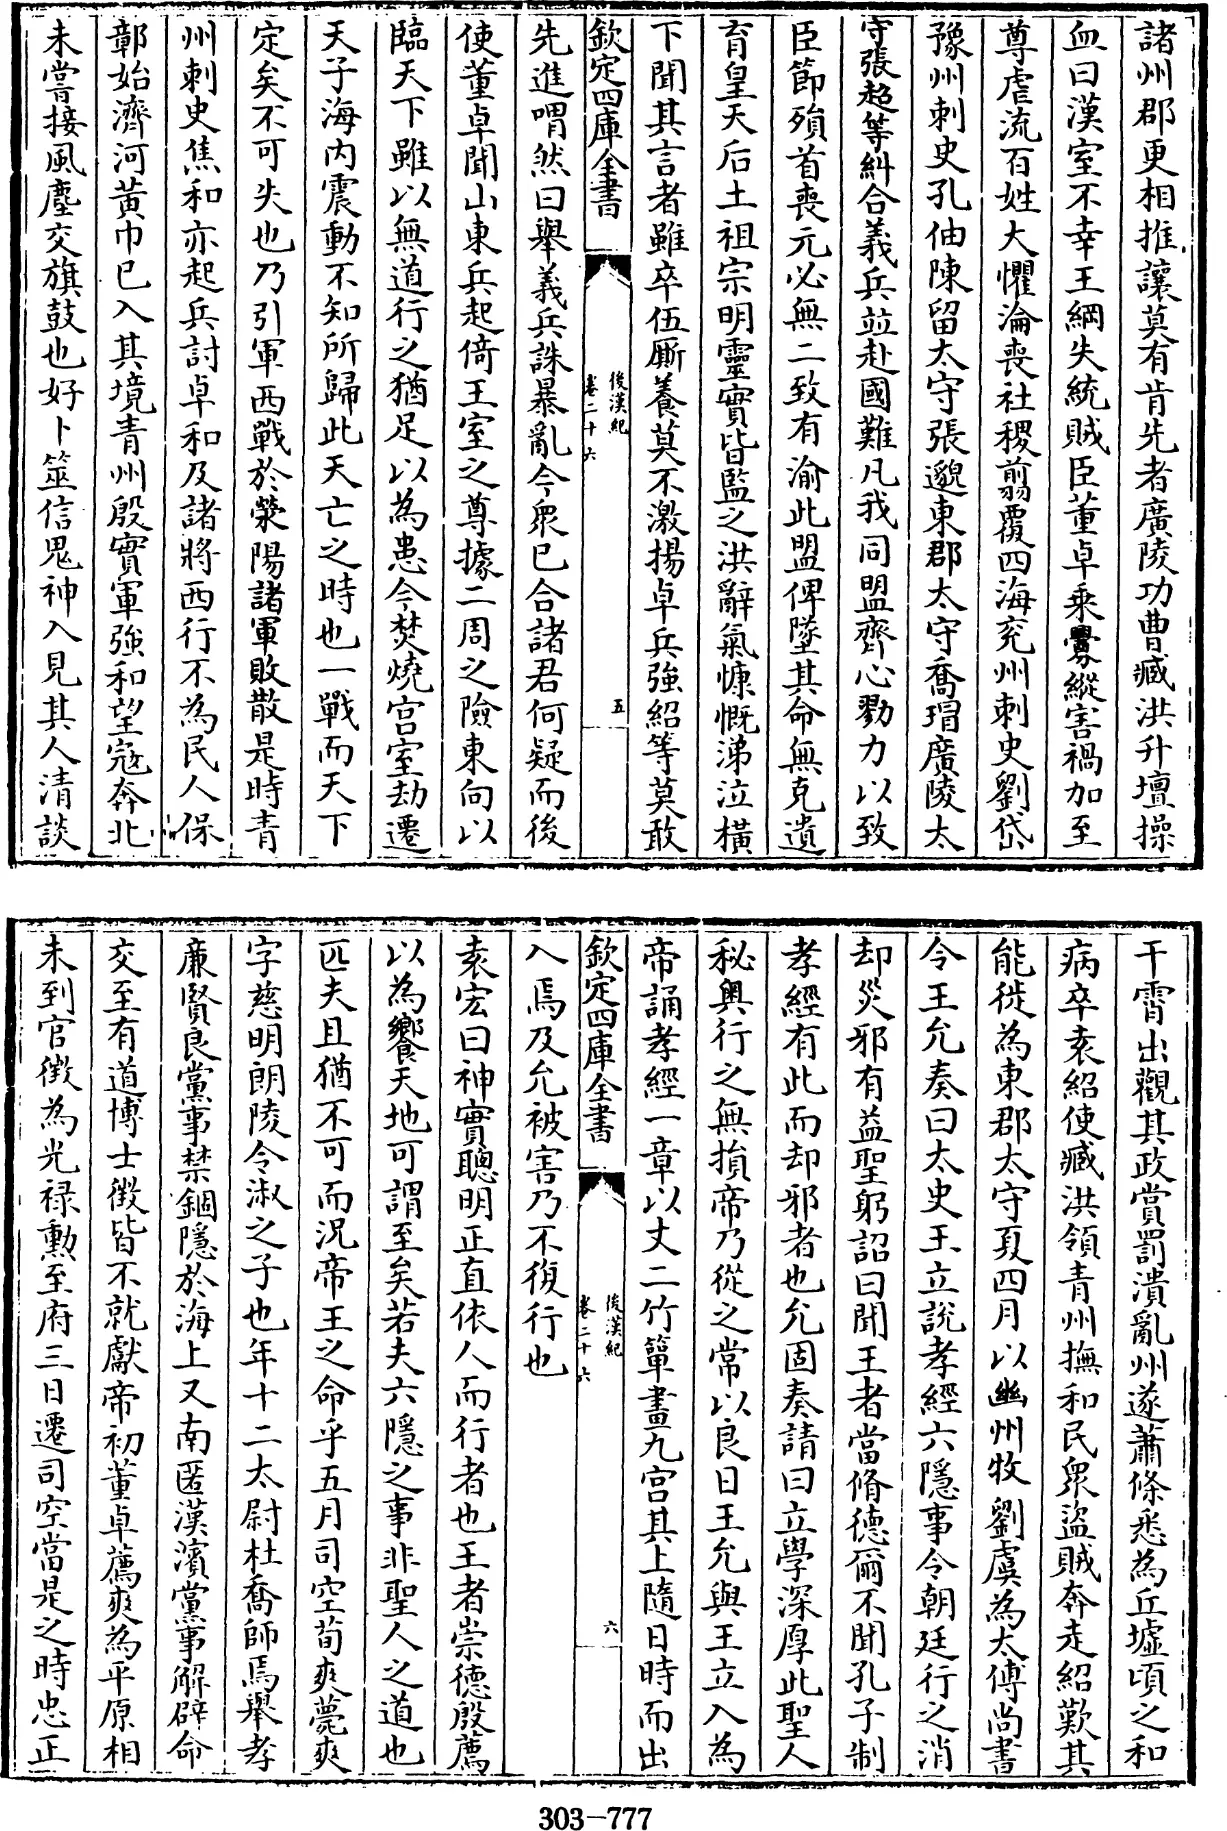 諸州郡更相推讓莫有肯先者廣陵功曹臧洪升壇操
血曰漢室不幸王綱失統賊臣董卓乘釁縱害禍加至
尊虐流百姓大懼淪喪社稷翦覆四海兖州刺史劉岱
豫州刺史孔伷陳留太守張邈東郡太守喬瑁廣陵太
守張超等糾合義兵並赴國難凡我同盟齊心勠力以致
臣節殞首喪元必無二致有渝此盟俾墜其命無克遺
育皇天后土祖宗明靈實皆監之洪辭氣慷慨涕泣橫
下聞其言者雖卒伍厮養莫不激揚卓兵強紹等莫敢
欽定四庫全書
後漢紀
卷二十六
五
先進喟然曰舉義兵誅暴亂今衆已合諸君何疑而後
使董卓聞山東兵起倚王室之尊據二周之險東向以
臨天下雖以無道行之猶足以為患今焚燒宫室劫遷
天子海内震動不知所歸此天亡之時也一戰而天下
定矣不可失也乃引軍西戰於滎陽諸軍敗散是時青
州刺史焦和亦起兵討卓和及諸將西行不為民人保
鄣始濟河黄巾已入其境青州殷實軍強和望寇奔北
未嘗接風塵交旗鼓也好卜筮信鬼神入見其人清談
干霄出觀其政賞罰潰亂州遂蕭條悉為丘墟頃之和
病卒袁紹使臧洪領青州撫和民衆盜賊奔走紹歎其
能徙為東郡太守夏四月以幽州牧劉虞為太傅尚書
令王允奏曰太史王立說孝經六隱事令朝廷行之消
却災邪有益聖躬詔曰聞王者當脩德爾不聞孔子制
孝經有此而却邪者也允固奏請曰立學深厚此聖人
秘奥行之無損帝乃從之常以良日王允與王立入為
帝誦孝經一章以丈二竹簞畫九宫其上隨日時而出
欽定四庫全書
後漢紀
卷二十六
六
入焉及允被害乃不復行也
袁宏曰神實聰明正直依人而行者也王者崇德殷薦
以為饗天地可謂至矣若夫六隱之事非聖人之道也
匹夫且猶不可而況帝王之命乎五月司空荀爽薨爽
字慈明朗陵令淑之子也年十二太尉杜喬師焉舉孝
廉賢良黨事禁錮隱於海上又南匿漢濱黨事解辟命
交至有道博士徵皆不就獻帝初董卓薦爽為平原相
未到官徵為光禄勲至府三日遷司空當是之時忠正
303-777